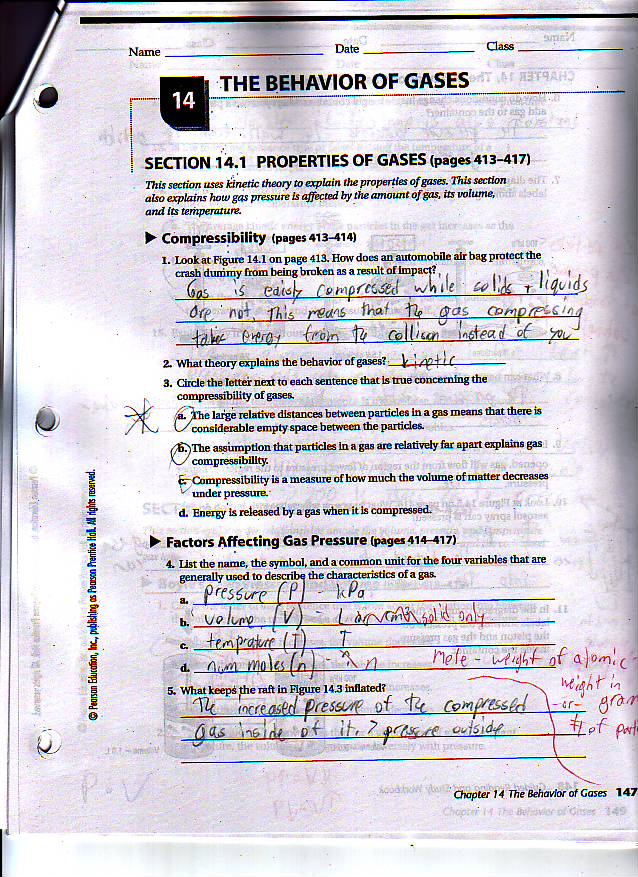 Name Date Class
14 THE BEHAVIOR OF GASES
SECTION 14.1 PROPERTIES OF GASES (pages 413–417)
This section uses kinetic theory to explain the properties of gases. This section
also explains how gas pressure is affected by the amount of gas, its volume,
and its temperature.
▶ Compressibility (pages 413–414)
1. Look at Figure 14.1 on page 413. How does an automobile air bag protect the
crash dummy from being broken as a result of impact?
Gas is compressed while solids + liquids
are not, This means that the gas compressing
takes energy from the instead of you
2. What theory explains the behavior of gases? kinetic
3. Circle the letter next to each sentence that is true concerning the
compressibility of gases.
a. The large relative distances between particles in a gas means that there is
considerable empty space between the particles.
b. The assumption that particles in a gas are relatively far apart explains gas
compressibility.
c. Compressibility is a measure of how much the volume of matter decreases
under pressure.
d. Energy is released by a gas when it is compressed.
▶ Factors Affecting Gas Pressure (pages 414–417)
4. List the name, the symbol, and a common unit for the four variables that are
generally used to describe the characteristics of a gas.
a. pressure (P) - kPa
b. volume (V) - L or cm3 solid only
c. temprature (T) T
d. num moles (n) - n
mole - weight of atomic
weight in
-or- gram
# of part
5. What keeps the raft in Figure 14.3 inflated?
The increased pressure of the compressed
gas inside of it. > pressure outside
© Pearson Education, Inc., publishing as Pearson Prentice Hall. All rights reserved.
Chapter 14 The Behavior of Gases 147